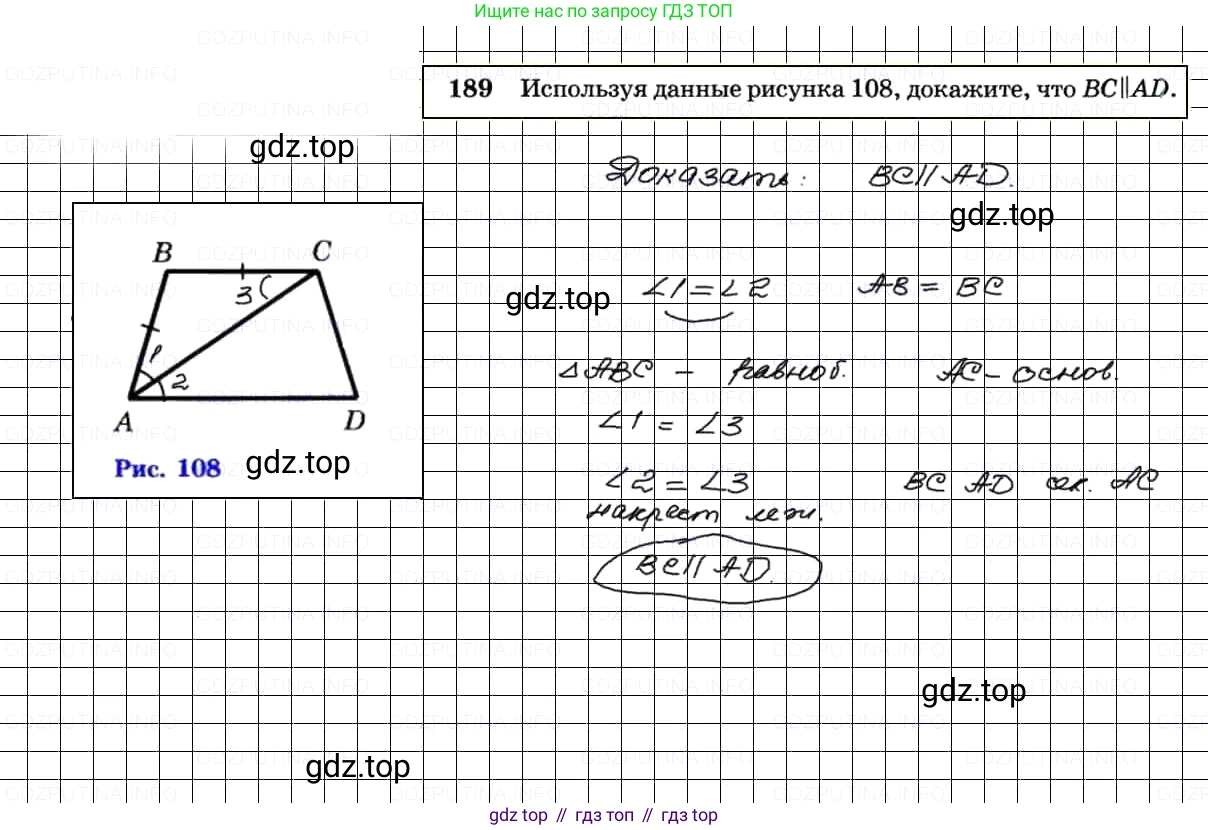 Ищите нас по запросу ГДЗ ТОП
189 Используя данные рисунка 108, докажите, что BC||AD.
gdz.top
Доказать: BC || AD.
gdz.top
B C
3
1
2
A D
Рис. 108 gdz.top
gdz.top ∠1 = ∠2 AB = BC
△ABC - равноб. AC - основ.
∠1 = ∠3
∠2 = ∠3 BC AD сек. AC
накрест леж.
BC || AD.
gdz.top
gdz.top
gdz top // гдз топ // гдз top
GDZPUTINA.INFO